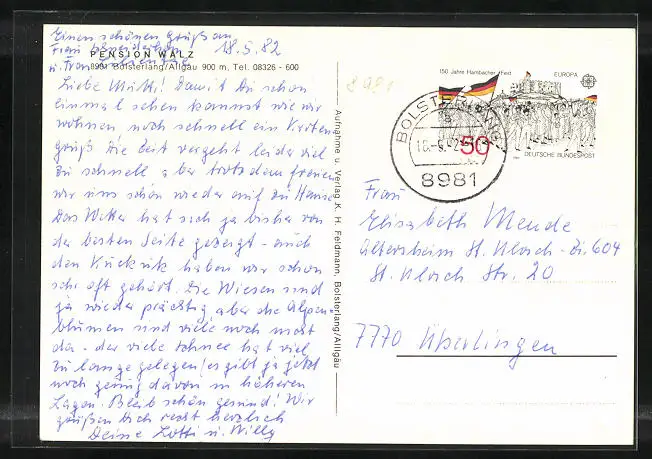 Einen schönen Gruß an
Frau
u. Frau
18.5.82
PENSION WALZ
8981 Bolsterlang/Allgäu 900 m, Tel. 08326 - 600
Liebe Mutti! Damit Du schon
einmal sehen kannst wie wir
wohnen noch schnell ein Karten-
gruß. Die Zeit vergeht leider viel
zu schnell aber trotzdem freuen
wir uns schon wieder auf zu Hause.
Das Wetter hat sich ja bisher von
der besten Seite gezeigt - auch
den Kuckuk haben wir schon
sehr oft gehört. Die Wiesen sind
ja wieder prächtig aber die Alpen-
blumen sind viele noch nicht
da - der viele Schnee hat viel
zu lange gelegen (es gibt ja jetzt
noch genug davon in höheren
Lagen. Bleib schön gesund! Wir
grüßen Dich recht herzlich
Deine Lotti u. Willy
Aufnahme u. Verlag K. H. Feldmann, Bolsterlang/Allgäu
8981
150 Jahre Hambacher Fest
EUROPA
50
DEUTSCHE BUNDESPOST
BOLSTERLANG
8981
Frau
Elisabeth Mende
Altersheim St. Ulrich - Zi. 604
St. Ulrich Str. 20
7770 Überlingen